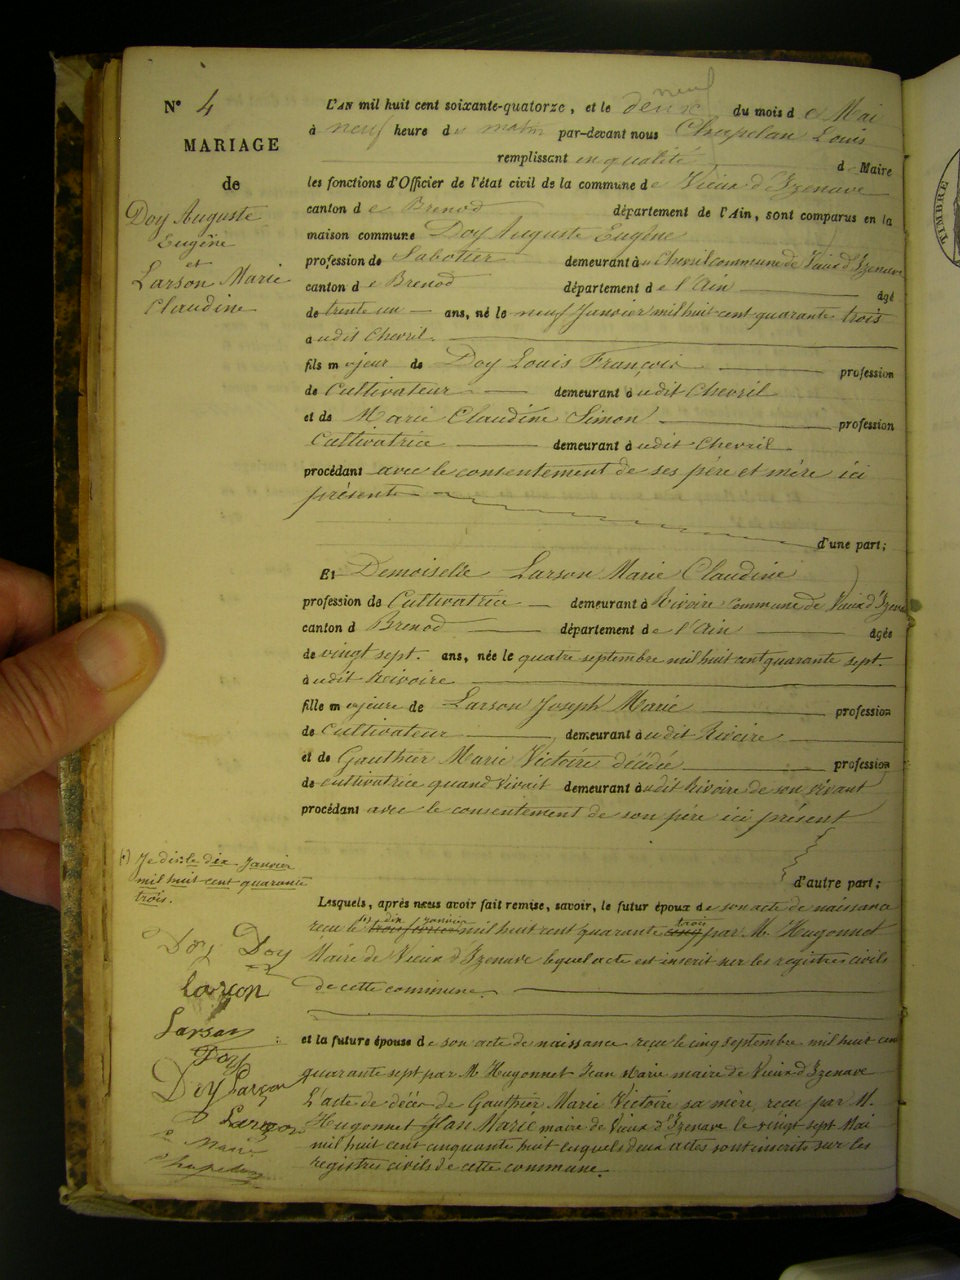 N° 4
MARIAGE
de
Doy Auguste
Eugène
et
Larson Marie
Claudine
neuf
L'AN mil huit cent soixante-quatorze, et le deux du mois de Mai
à neuf heure du matin par-devant nous Chapelan Louis
remplissant en qualité de Maire
les fonctions d'Officier de l'état civil de la commune de Vieux d'Izenave
canton de Brenod département de l'Ain, sont comparus en la
maison commune Doy Auguste Eugène
profession de Sabotier demeurant à Chevril commune de Vieux d'Izenave
canton de Brenod département de l'Ain âgé
de trente un ans, né le neuf Janvier mil huit cent quarante trois
audit Chevril.
fils majeur de Doy Louis François profession
de Cultivateur demeurant audit Chevril
et de Marie Claudine Simon profession
Cultivatrice demeurant audit Chevril
procédant avec le consentement de ses père et mère ici
présents
d'une part;
Et Demoiselle Larson Marie Claudine
profession de Cultivatrice demeurant à Rivoire commune de Vieux d'Izenave
canton d Brenod département de l'Ain âgée
de vingt sept. ans, née le quatre septembre mil huit cent quarante sept.
audit Rivoire
fille majeure de Larson Joseph Marie profession
de Cultivateur demeurant audit Rivoire
et de Gauthier Marie Victoire décédée profession
de cultivatrice quand vivait demeurant audit Rivoire de son vivant
procédant avec le consentement de son père ici présent
d'autre part;
(+) Je dis: le dix Janvier
mil huit cent quarante
trois.
Lesquels, après nous avoir fait remise, savoir, le futur époux de son acte de naissance
(+) dix janvier trois
reçu le mil huit cent quarante par M. Hugonnet
Maire de Vieux d'Izenave lequel acte est inscrit sur les registres civils
de cette commune.
Doy Doy
Larçon
Larson
Doy
Doy Larçon
Larçon
et la future épouse de son acte de naissance reçu le cinq septembre mil huit cent
quarante sept par M. Hugonnet Jean Marie maire de Vieux d'Izenave
L'acte de décès de Gauthier Marie Victoire sa mère, reçu par M.
Hugonnet Jean Marie maire de Vieux d'Izenave le vingt sept Mai
mil huit cent cinquante huit lesquels deux actes sont inscrits sur les
registres civils de cette commune.
Le Maire
Chapelan
TIMBRE